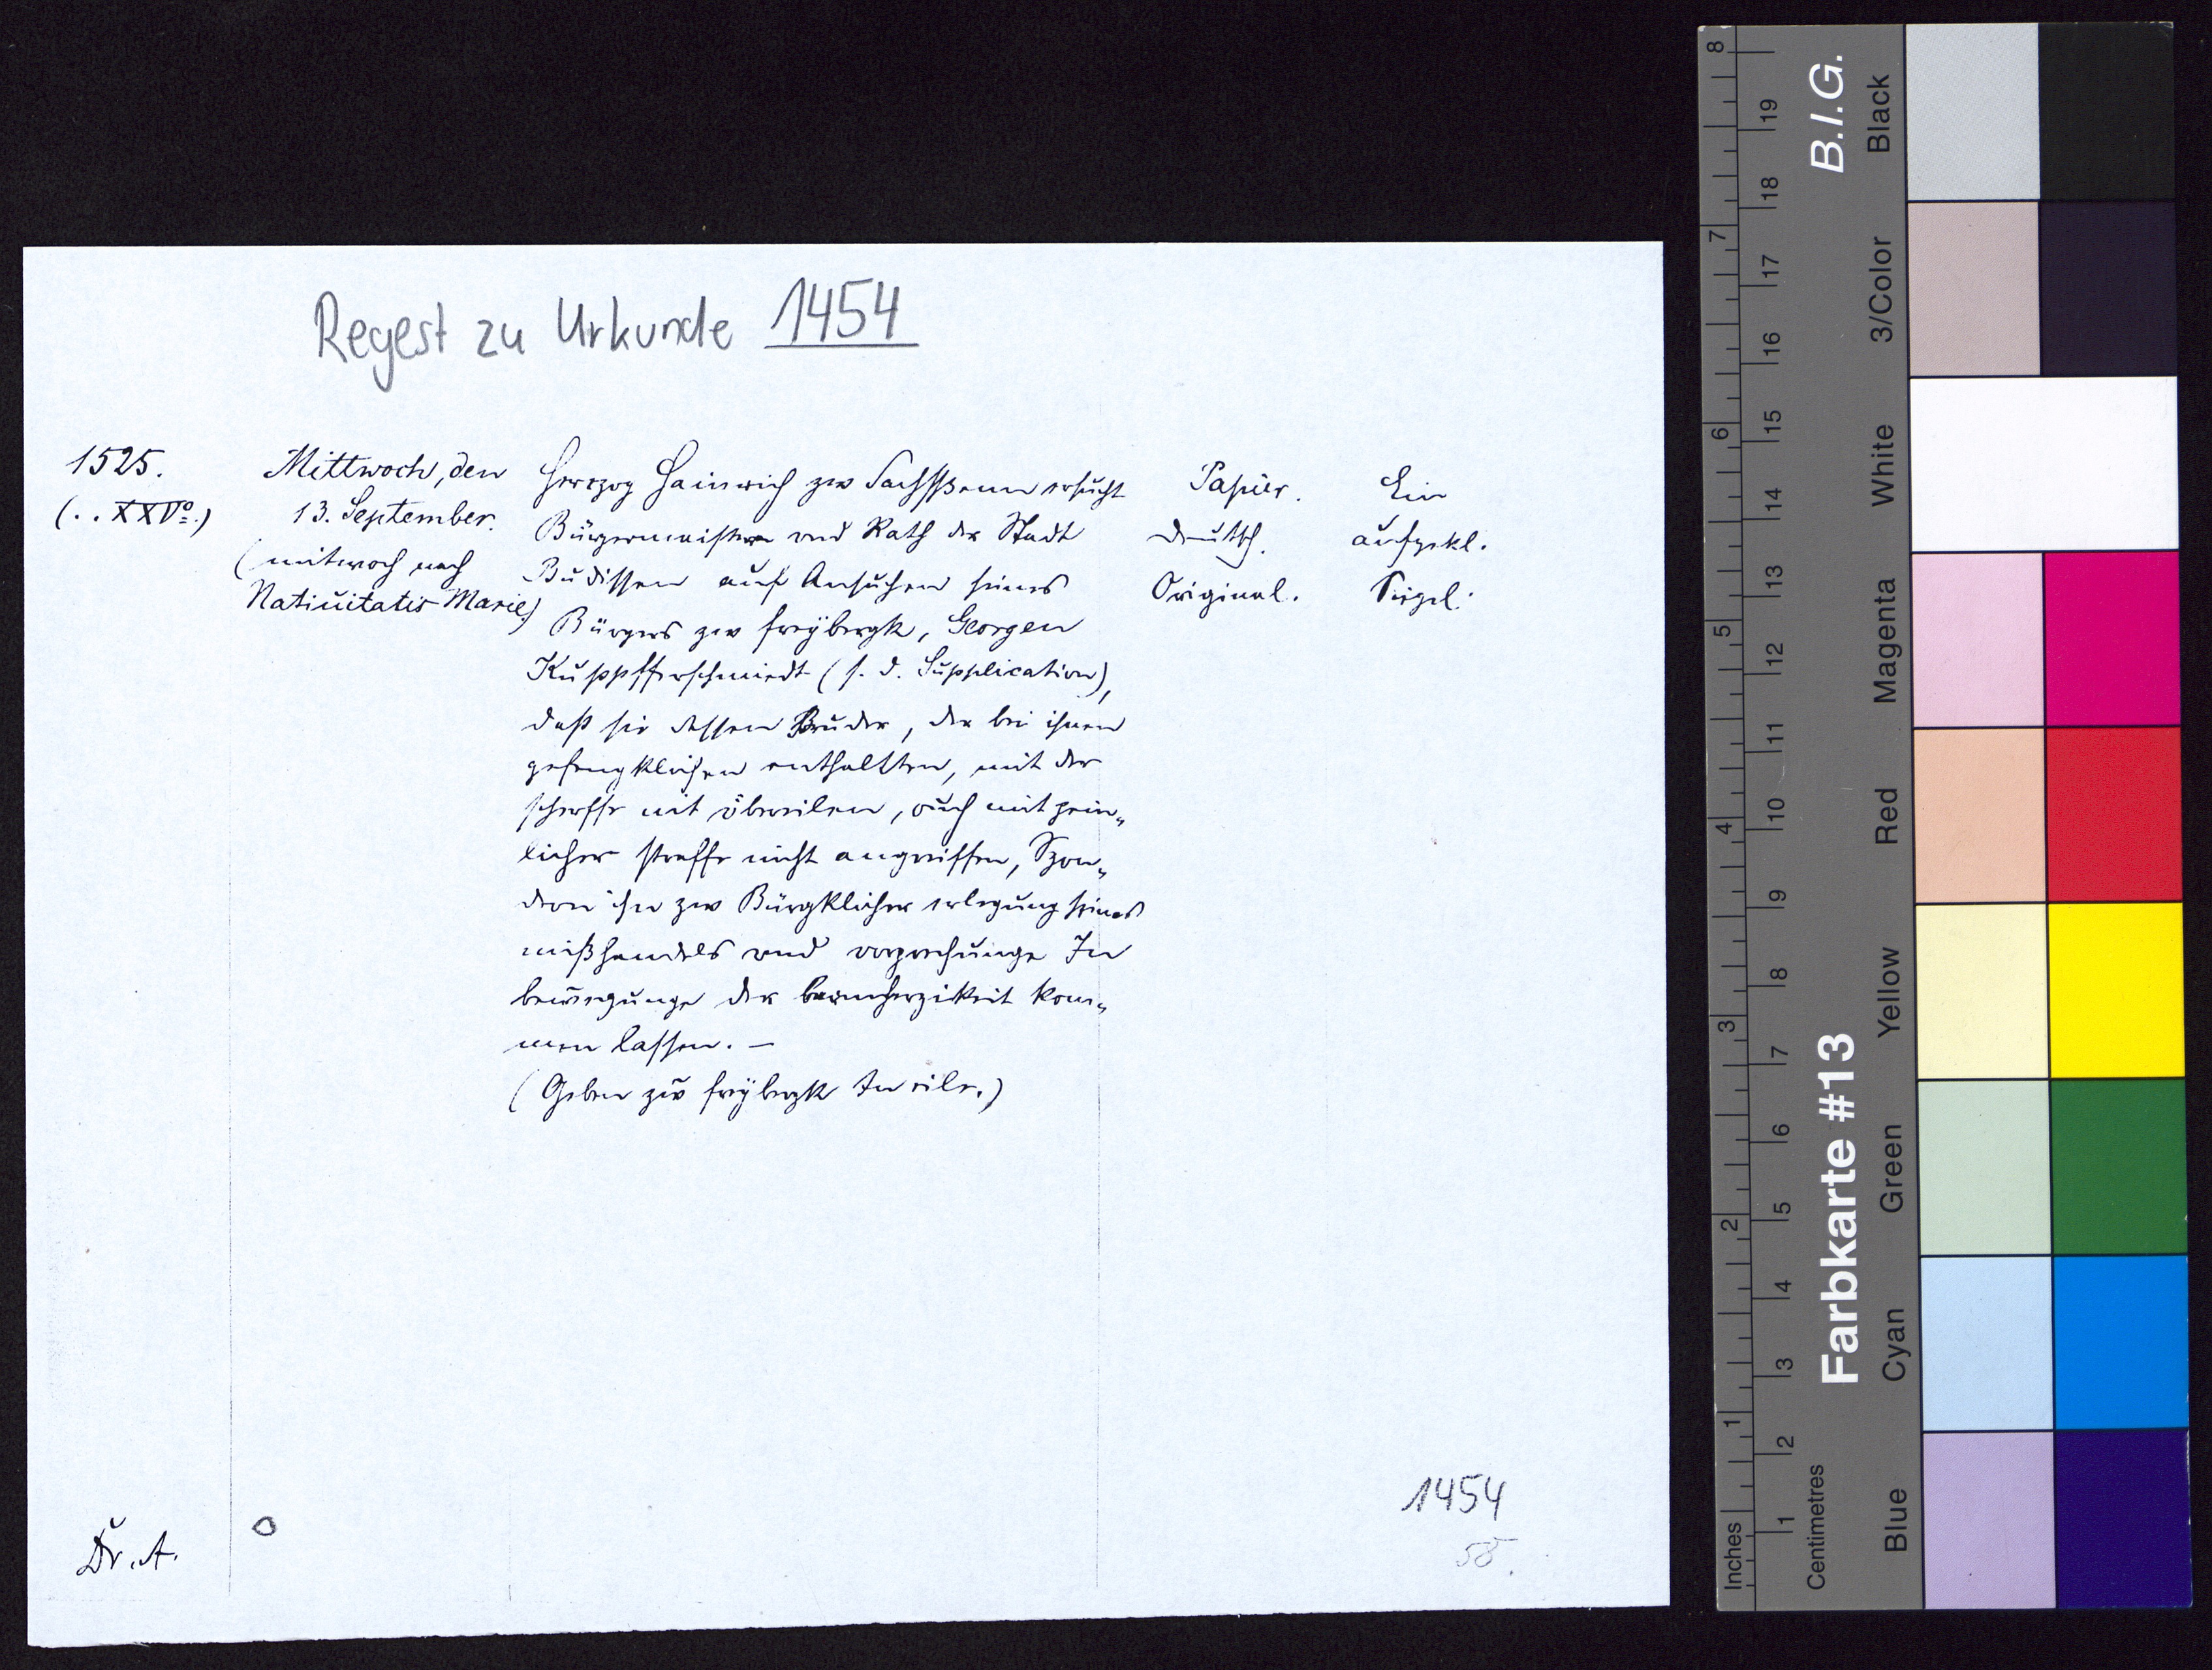 Regest zu Urkunde 1454
1525.
(. . XXVo.)
Mittwoch, den
13. September.
(mitwoch nach
Natiuitatis Marie)
Herzog Hainrich zew Sachssenn ersucht
Bürgermeister und Rath der Stadt
Budissen auf Ansuchen seines
Bürgers zew freybergk, Georgen
Kuppfferschmiedt (s. d. Supplication),
daß sie dessen Bruder, der bei ihnen
gefengklichen enthaltten, mit der
scherffe nit übereilen, auch mit pein„
licher straffe nicht angreiffen, Szon„
dern ihn zew Bürgklicher erlegung seines
mißhandels und vorzeichunge In
bewegunge der barmherzikeit kom„
men lassen. —
(Geben zew freybergk In eile.)
Papier.
deutsch.
Original.
Ein
aufgekl.
Siegel.
Dr. A.
1454
58.
B.I.G.
Farbkarte #13
Black
3/Color
White
Magenta
Red
Yellow
Green
Cyan
Blue
Inches
1 2 3 4 5 6 7 8
Centimetres
1 2 3 4 5 6 7 8 9 10 11 12 13 14 15 16 17 18 19